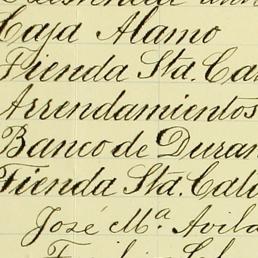 Caja Alamo
Tienda Sta. Cat
Arrendamientos
Banco de Duran
Tienda Sta. Cata
José Mª. Avila